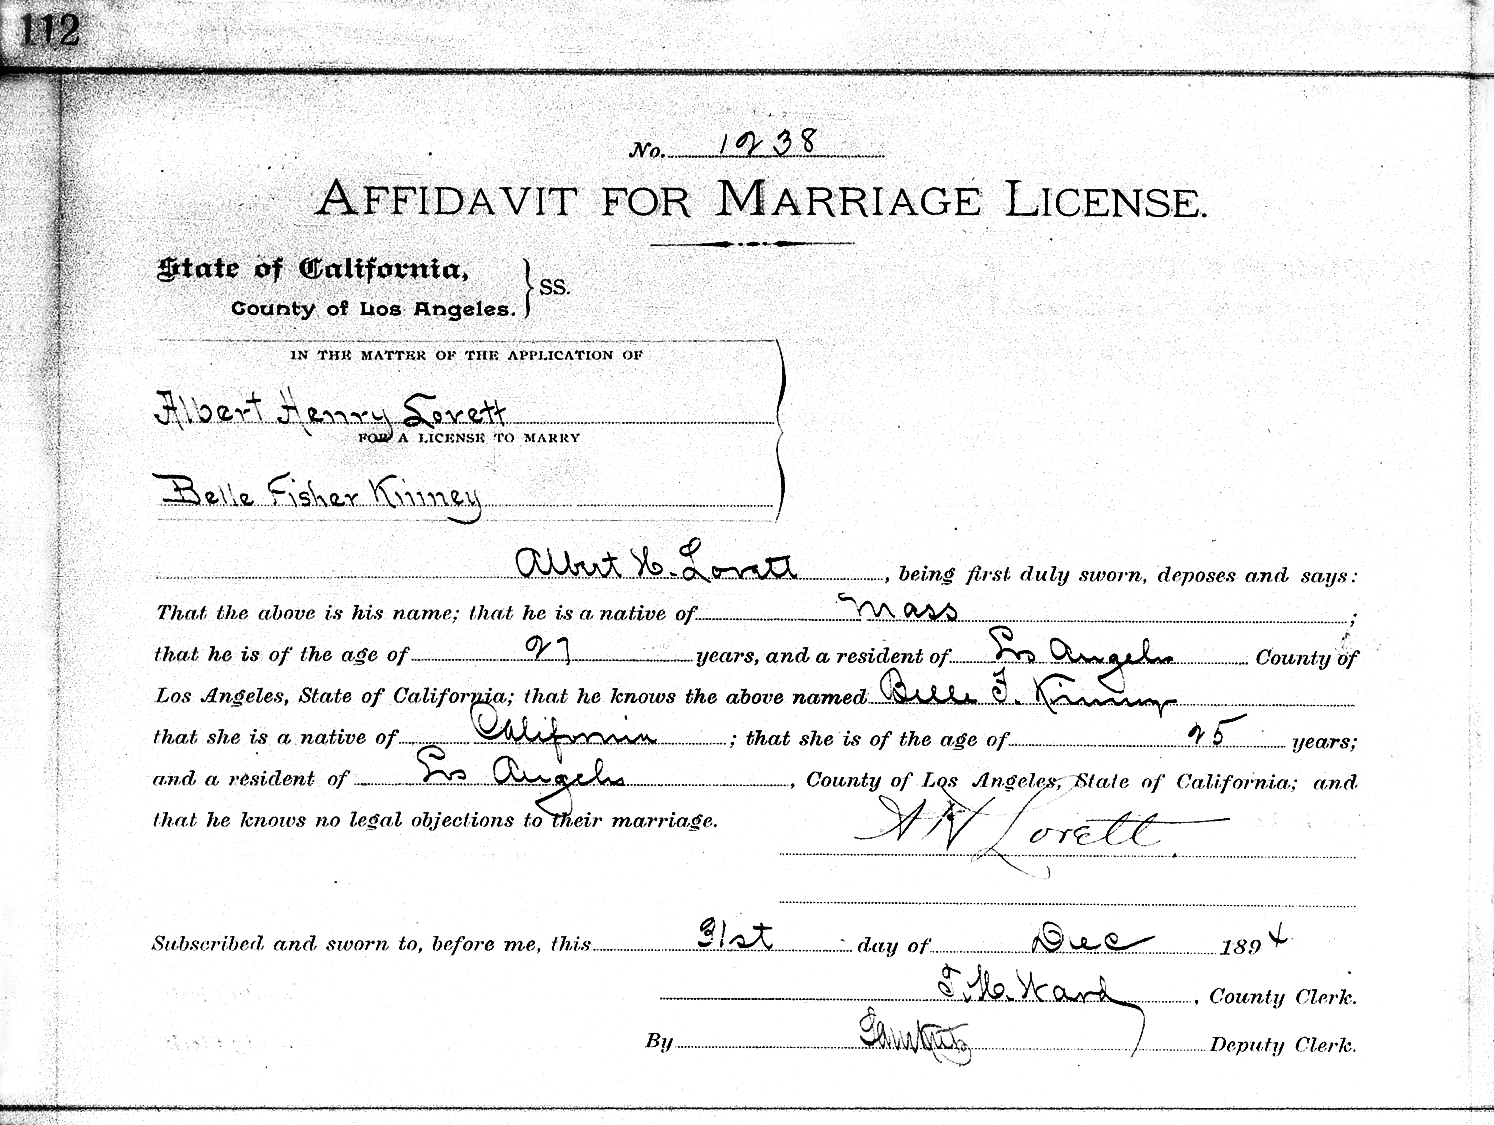 112
No. 1238
AFFIDAVIT FOR MARRIAGE LICENSE.
State of California,
County of Los Angeles. } SS.
IN THE MATTER OF THE APPLICATION OF
Albert Henry Lovett
FOR A LICENSE TO MARRY
Belle Fisher Kinney
Albert H. Lovett, being first duly sworn, deposes and says:
That the above is his name; that he is a native of Mass;
that he is of the age of 27 years, and a resident of Los Angeles County of
Los Angeles, State of California; that he knows the above named Belle F. Kinney
that she is a native of California; that she is of the age of 25 years;
and a resident of Los Angeles, County of Los Angeles, State of California; and
that he knows no legal objections to their marriage.
A H Lovett.
Subscribed and sworn to, before me, this 31st day of Dec 1894
T. H. Ward, County Clerk.
By Deputy Clerk.